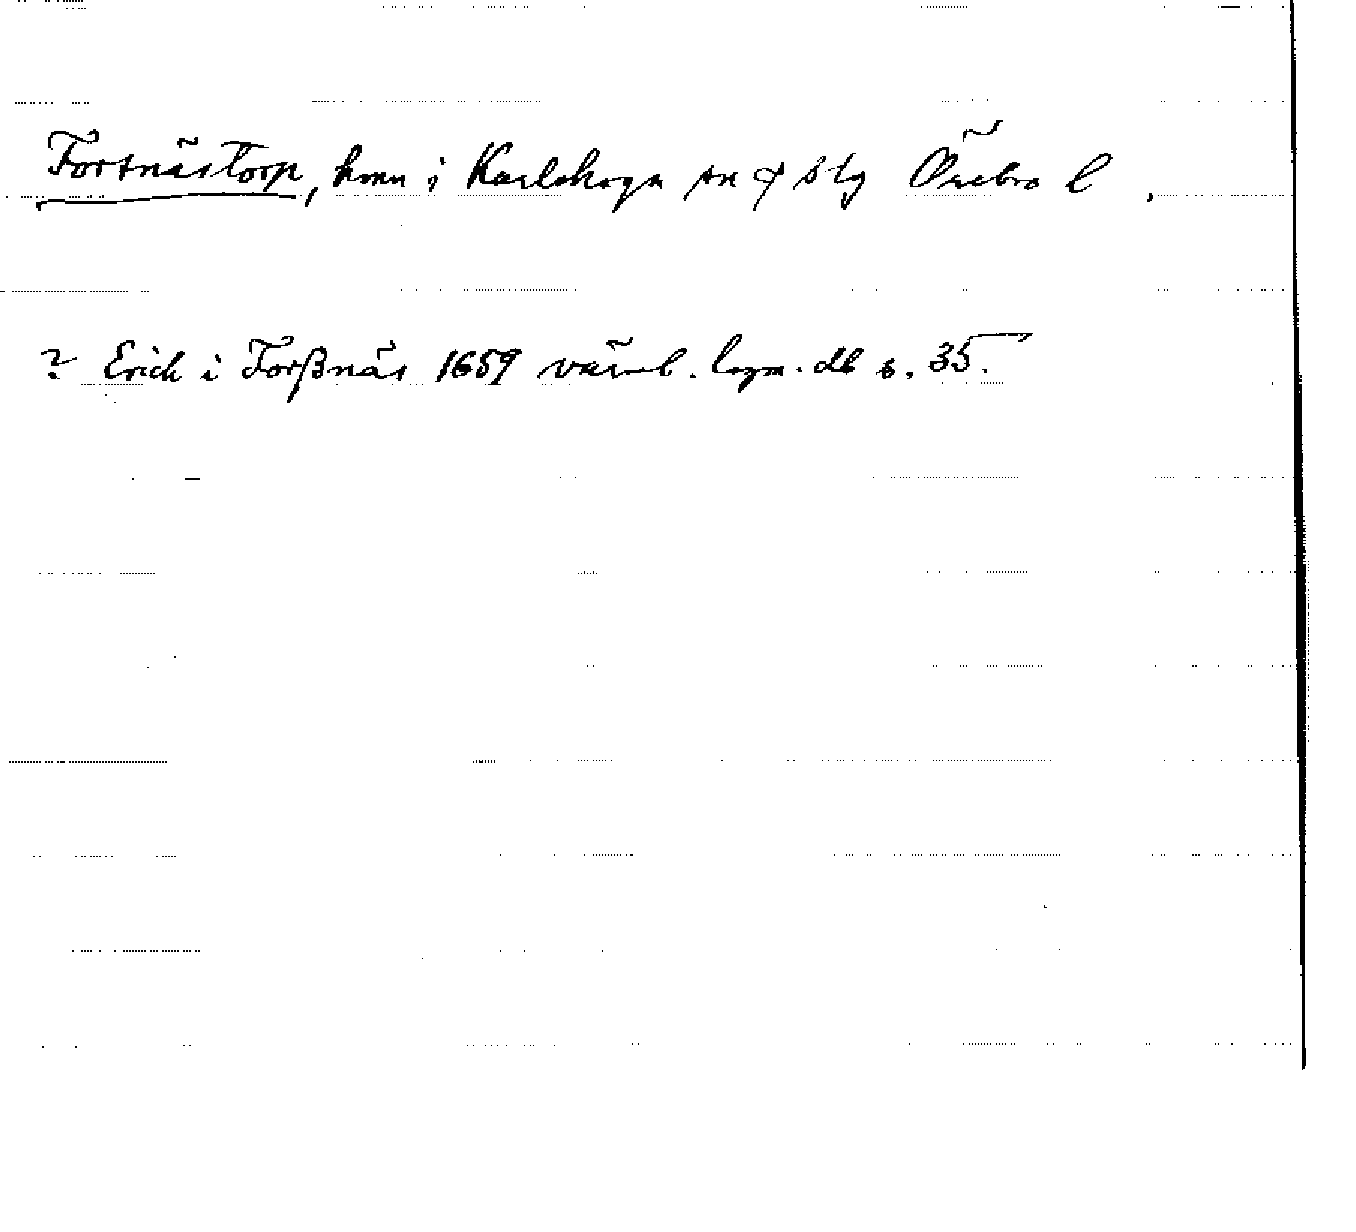 Forsnästorp, hmn i Karlskoga sn o stg Örebro l,
? Erich i Forßnäs 1659 värml. lagm. db s. 35.